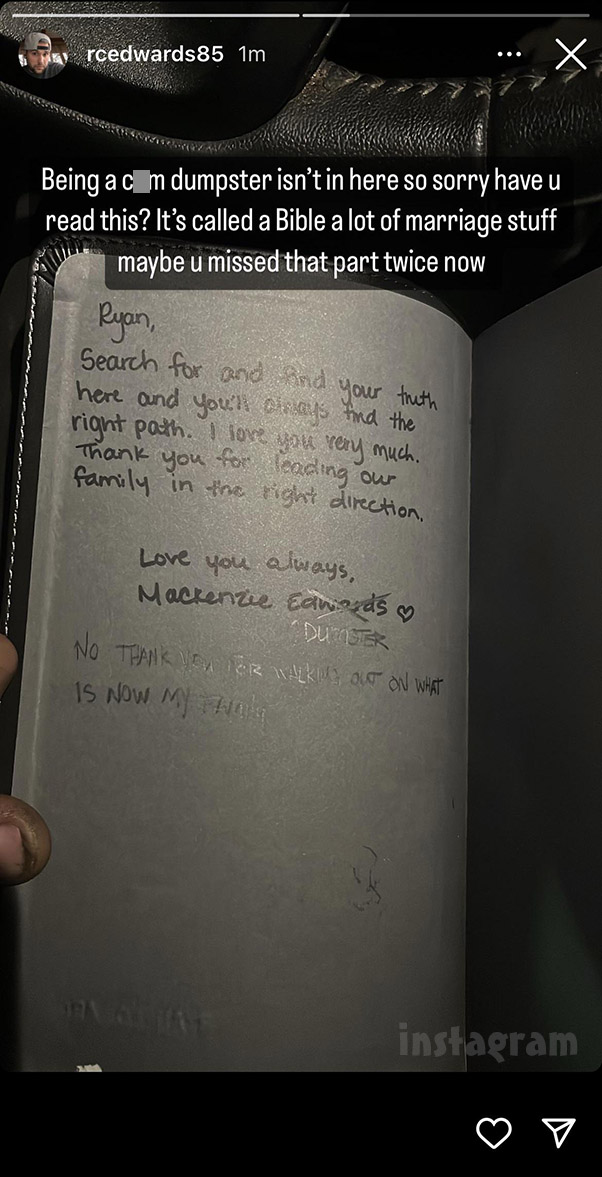 rcedwards85 1m
Being a c m dumpster isn't in here so sorry have u
read this? It's called a Bible a lot of marriage stuff
maybe u missed that part twice now
Ryan,
Search for and find your truth
here and you'll always find the
right path. I love you very much.
Thank you for leading our
family in the right direction.
Love you always,
Mackenzie Edwards ♡
DUMPSTER
NO THANK YOU FOR WALKING OUT ON WHAT
IS NOW MY FAMILY
instagram